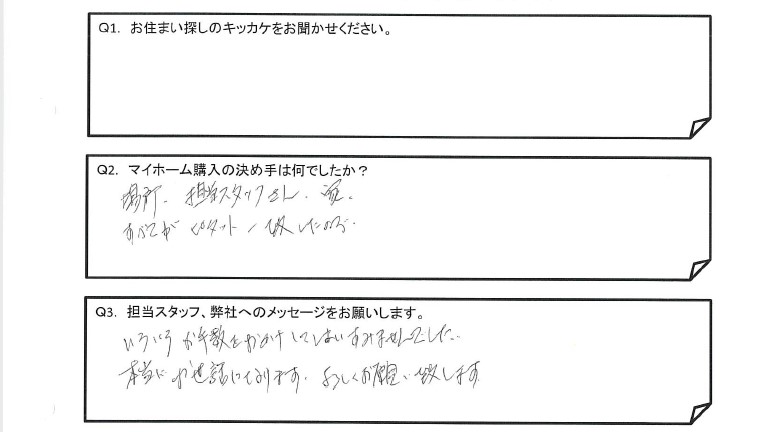 Q1. お住まい探しのキッカケをお聞かせください。
Q2. マイホーム購入の決め手は何でしたか？
場所、担当スタッフさん、家。
すべてが ピタット一致したので。
Q3. 担当スタッフ、弊社へのメッセージをお願いします。
いろいろお手数をおかけしてしまいすみませんでした。
本当にお世話になります。よろしくお願い致します